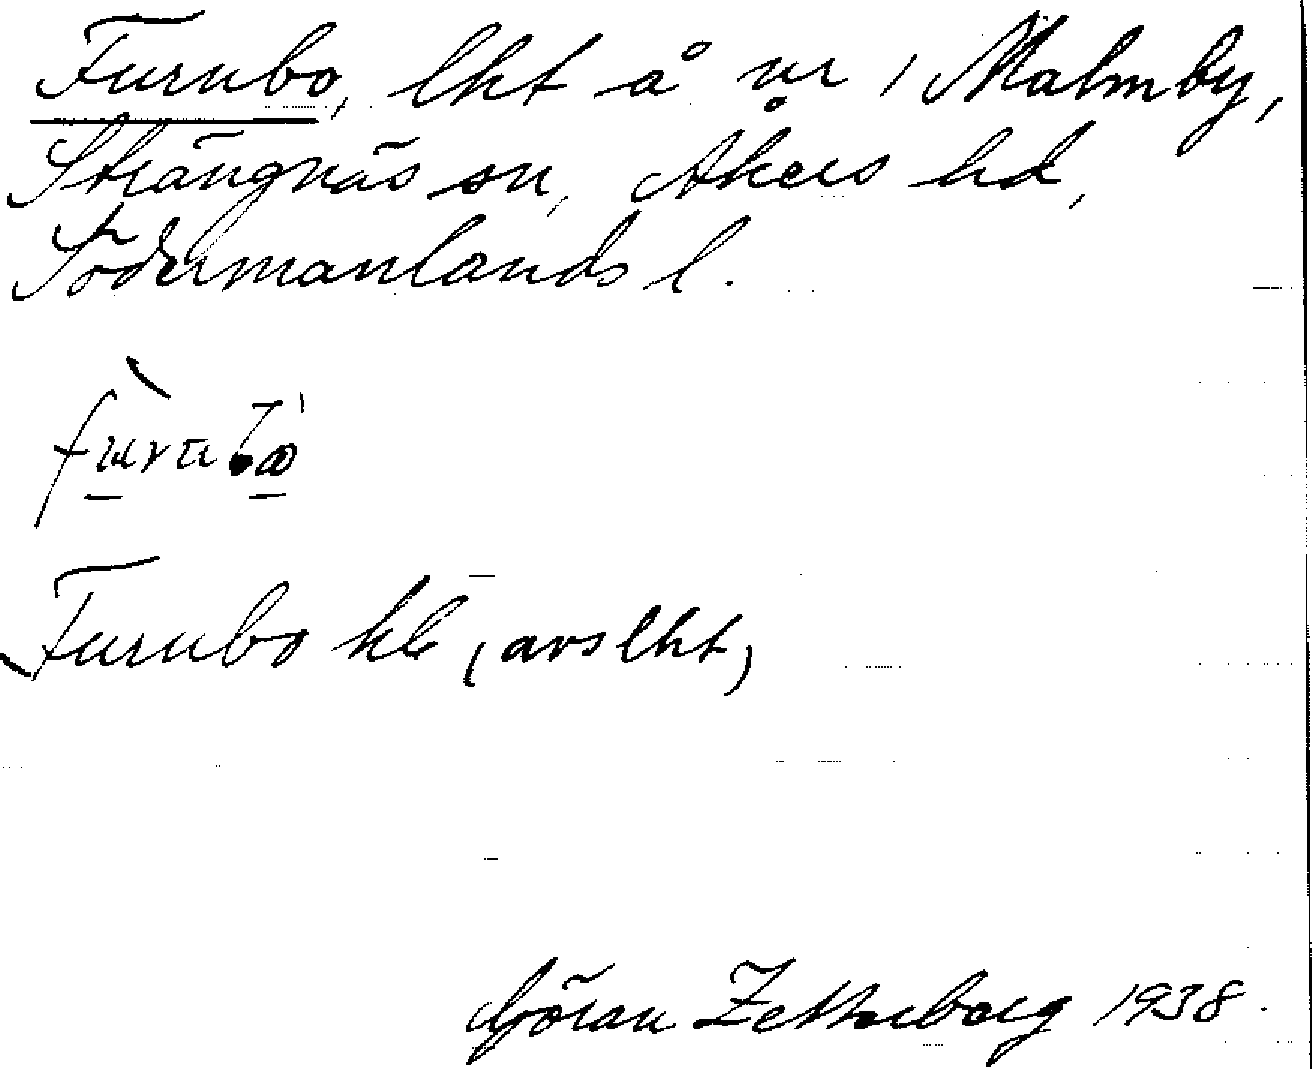 Furubo, lht å nr 1 Malmby,
Strängnäs sn, Åkers hd,
Södermanlands l.
Furubo kb (avs lht)
Göran Zetterborg 1938.